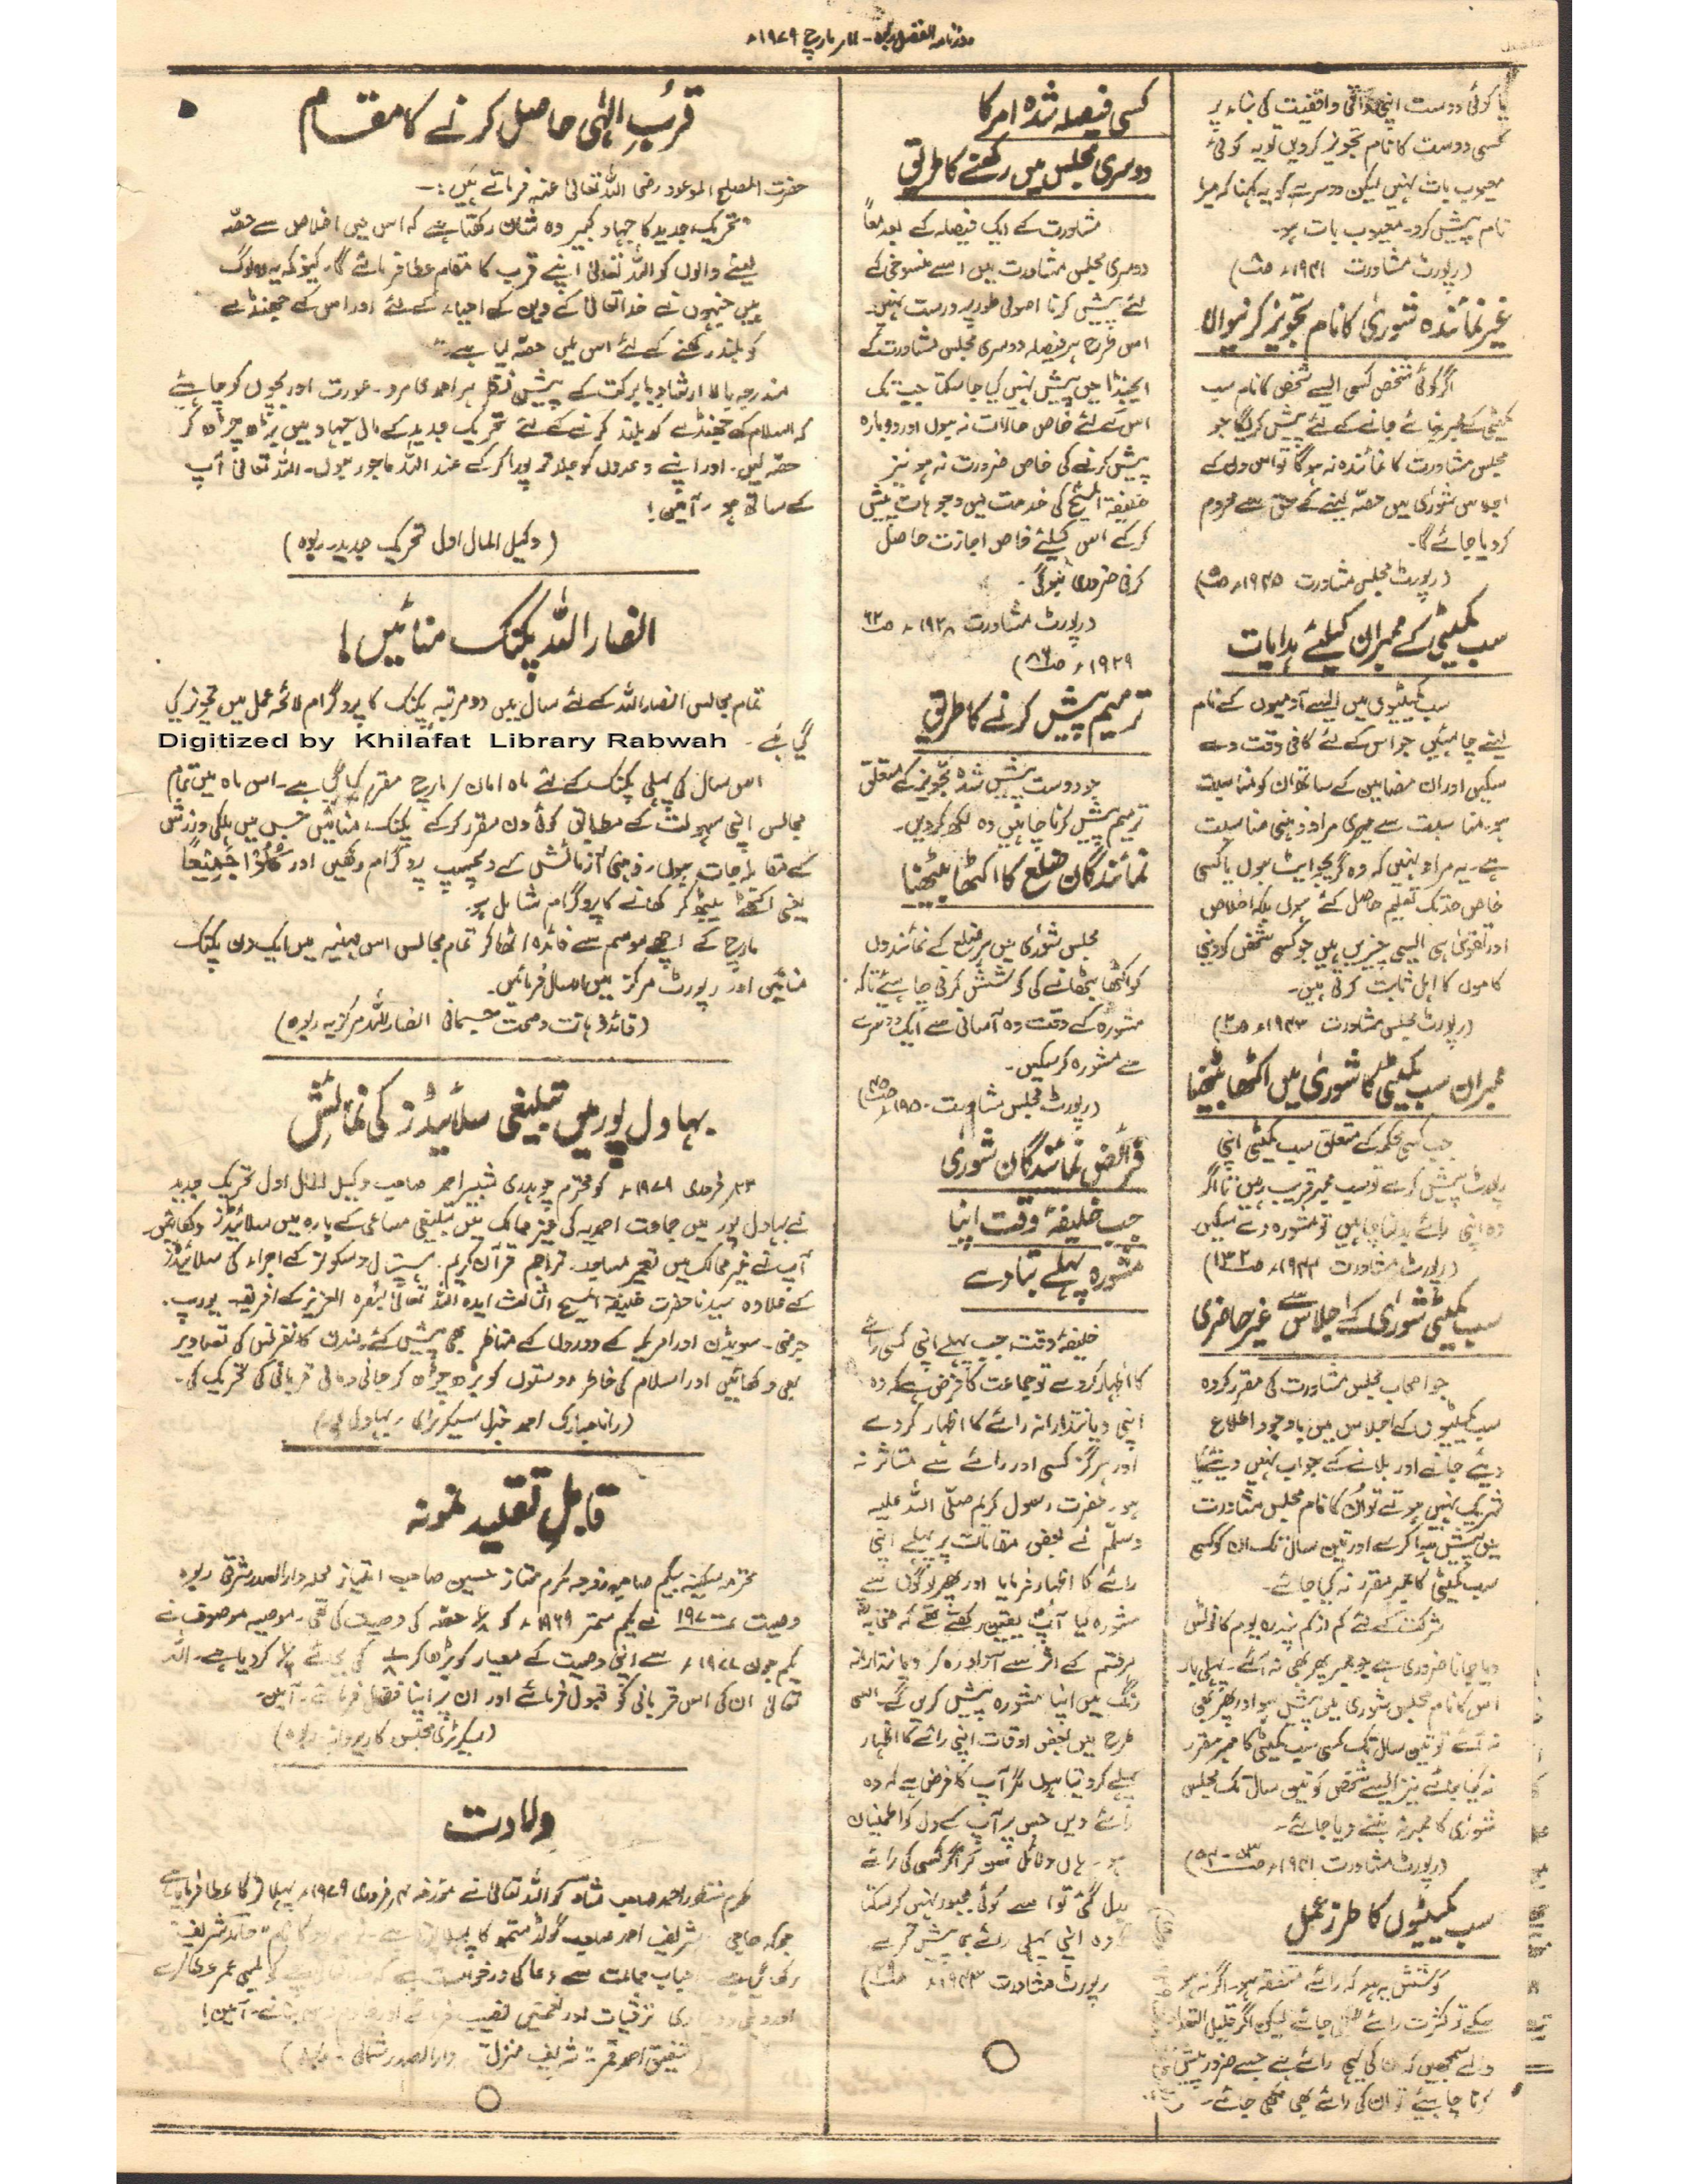 روزنامہ الفضل ربوہ - مارچ ۱۹۷۹ء
یا کوئی دوست اپنی ذاتی واقفیت کی بناء پر
کسی دوست کا نام تجویز کر دیں تو یہ کوئی
معیوب بات نہیں لیکن دوسرے کو یہ کہنا کہ میرا
نام پیش کرو۔ معیوب بات ہو۔
(رپورٹ مشاورت ۱۹۳۱ء)
غیر نمائندہ شوریٰ کا نام تجویز کرنیوالا
اگر کوئی شخص کسی ایسے شخص کا نام سب
کمیٹی کے ممبر بنائے جانے کے لئے پیش کریگا جو
مجلس مشاورت کا نمائندہ نہ ہوگا تو اس دن کے
اجلاس شوریٰ میں حصّہ لینے کے حق سے محروم
کر دیا جائے گا۔
(رپورٹ مجلس مشاورت ۱۹۳۵ء ص۵)
سب کمیٹی کے ممبران کیلئے ہدایات
سب کمیٹیوں میں ایسے آدمیوں کے نام
لینے چاہئیں جو اس کے لئے کافی وقت دے
سکیں اور ان مضامین کے ساتھ ان کو مناسبت
ہو۔ مناسبت سے میری مراد ذہنی مناسبت
ہے۔ یہ مراد نہیں کہ وہ گریجوایٹ ہوں یا کسی
خاص حد تک تعلیم حاصل کئے ہوں بلکہ اخلاص
اور تقویٰ ہی ایسی چیزیں ہیں جو کسی شخص کو دینی
کاموں کا اہل ثابت کرتی ہیں۔
(رپورٹ مجلس مشاورت ۱۹۳۳ء)
ممبران سب کمیٹی کا شوریٰ میں اکٹھا بیٹھنا
جب کسی محکمہ کے متعلق سب کمیٹی اپنی
رپورٹ پیش کرے تو سب ممبر قریب رہیں تا اگر
وہ اپنی رائے بدلنا چاہیں تو مشورہ دے سکیں۔
(رپورٹ مشاورت ۱۹۴۳ء ص۱۳۲)
سب کمیٹی شوریٰ کے اجلاس سے غیر حاضری
جو اصحاب مجلس مشاورت کی مقرر کردہ
سب کمیٹیوں کے اجلاس میں باوجود اطلاع
دیئے جانے اور بلانے کے جواب نہیں دیتے یا
شریک نہیں ہوتے تو ان کا نام مجلس مشاورت
میں پیش ہوا کرے اور تین سال تک ان کو کسی
سب کمیٹی کا ممبر مقرر نہ کیا جائے۔
شرکت کے لئے کم از کم پندرہ یوم کا نوٹس
دیا جانا ضروری ہے جو ممبر پھر بھی نہ آئے۔ پہلی بار
اس کا نام مجلس شوریٰ میں پیش ہو اور پھر بھی
نہ آئے تو تین سال تک کسی سب کمیٹی کا ممبر مقرر
نہ کیا جائے نیز ایسے شخص کو تین سال تک مجلس
شوریٰ کا ممبر نہ بننے دیا جائے۔
(رپورٹ مشاورت ۱۹۳۱ء ص۵۳-۵۴)
سب کمیٹیوں کا طرز عمل
کوشش یہ ہو کہ رائے متفقہ ہو۔ اگر نہ ہو
سکے تو کثرت رائے لکھی جائے لیکن اگر قلیل التعداد
والے سمجھیں کہ ان کی ایسی رائے ہے جسے ضرور پیش
کرنا چاہیئے تو ان کی رائے بھی لکھی جائے۔
کسی فیصلہ شدہ امر کا
دوسری مجلس میں رکھنے کا طریق
مشاورت کے ایک فیصلہ کے بعد معاً
دوسری مجلس مشاورت میں اسے منسوخی کے
لئے پیش کرنا اصولی طور پر درست نہیں۔
اس طرح ہر فیصلہ دوسری مجلس مشاورت کے
ایجنڈا میں پیش نہیں کیا جا سکتا جب تک
اس کے لئے خاص حالات نہ ہوں اور دوبارہ
پیش کرنے کی خاص ضرورت نہ ہو نیز
خلیفۃ المسیح کی خدمت میں وجوہات پیش
کر کے اس کیلئے خاص اجازت حاصل
کرنی ضروری ہوگی۔
(رپورٹ مشاورت ۱۹۲۸ء ص۶۲
۱۹۲۹ء ص۸۶)
ترمیم پیش کرنے کا طریق
جو دوست پیش شدہ تجویز کے متعلق
ترمیم پیش کرنا چاہیں وہ لکھ کر دیں۔
نمائندگان ضلع کا اکٹھا بیٹھنا
مجلس شوریٰ میں ہر ضلع کے نمائندوں
کو اکٹھا بٹھانے کی کوشش کرنی چاہیئے تاکہ
مشورہ کے وقت وہ آسانی سے ایک دوسرے
سے مشورہ کر سکیں۔
(رپورٹ مجلس مشاورت ۱۹۵۰ء)
فرائض نمائندگان شوریٰ
جب خلیفۂ وقت اپنا
مشورہ پہلے بتا دے
خلیفۂ وقت جب پہلے اپنی کسی رائے
کا اظہار کر دے تو جماعت کا فرض ہے کہ وہ
اپنی دیانتدارانہ رائے کا اظہار کر دے
اور ہرگز کسی اور رائے سے متاثر نہ
ہو۔ حضرت رسول کریم صلّی اللہ علیہ
وسلّم نے بعض مقامات پر پہلے اپنی
رائے کا اظہار فرمایا اور پھر لوگوں سے
مشورہ لیا آپؐ یقین رکھتے تھے کہ صحابہؓ
ہر قسم کے اثر سے آزاد رہ کر دیانتدارانہ
رنگ میں اپنا مشورہ پیش کریں گے اسی
طرح میں بعض اوقات اپنی رائے کا اظہار
پہلے کر دیتا ہوں مگر آپ کا فرض ہے کہ وہ
رائے دیں جس پر آپ کے دل کو اطمینان
ہو۔ ہاں دلائل سن کر اگر کسی کی رائے
بدل گئی تو اسے کوئی مجبور نہیں کر سکتا
کہ وہ اپنی پہلی رائے ہی پیش کرے۔
رپورٹ مشاورت ۱۹۴۳ء
قربِ الٰہی حاصل کرنے کا مقام
حضرت المصلح الموعود رضی اللہ تعالیٰ عنہ فرماتے ہیں:۔
"تحریک جدید کا جہاد کبیر وہ شان رکھتا ہے کہ اس میں اخلاص سے حصّہ
لینے والوں کو اللہ تعالیٰ اپنے قرب کا مقام عطا فرمائے گا۔ کیونکہ یہ وہ لوگ
ہیں جنہوں نے خدا تعالیٰ کے دین کے احیاء کے لئے اور اس کے جھنڈے
کو بلند رکھنے کے لئے اس میں حصّہ لیا ہے۔"
مندرجہ بالا ارشاد بابرکت کے پیش نظر ہر احمدی مرد۔ عورت اور بچوں کو چاہیئے
کہ اسلام کے جھنڈے کو بلند کرنے کے لئے تحریک جدید کے مالی جہاد میں بڑھ چڑھ کر
حصّہ لیں۔ اور اپنے وعدوں کو جلد تر پورا کر کے عند اللہ ماجور ہوں۔ اللہ تعالیٰ آپ
کے ساتھ ہو۔ آمین!
(وکیل المال اول تحریک جدید۔ ربوہ)
انصار اللہ پکنک منائیں!
تمام مجالس انصار اللہ کے لئے سال میں دو مرتبہ پکنک کا پروگرام لائحہ عمل میں تجویز کیا
گیا ہے۔
Digitized by Khilafat Library Rabwah
اس سال کی پہلی پکنک کے لئے ماہ امان/مارچ مقرر کیا گیا ہے۔ اس ماہ میں تمام
مجالس اپنی سہولت کے مطابق کوئی دن مقرر کر کے پکنک منائیں جس میں ہلکی ورزش
کے مقابلہ جات ہوں۔ ذہنی آزمائش کے دلچسپ پروگرام رکھیں اور کُلُوْا جَمِیْعًا
یعنی اکٹھے بیٹھ کر کھانے کا پروگرام شامل ہو۔
مارچ کے اچھے موسم سے فائدہ اٹھا کر تمام مجالس اس مہینہ میں ایک دن پکنک
منائیں اور رپورٹ مرکز میں ارسال فرمائیں۔
(قائد ذہانت و صحت جسمانی انصار اللہ مرکزیہ ربوہ)
بہاول پور میں تبلیغی سلائیڈز کی نمائش
۲۳ فروری ۱۹۷۹ء کو محترم چوہدری شبیر احمد صاحب وکیل المال اول تحریک جدید
نے بہاول پور میں جماعت احمدیہ کی غیر ممالک میں تبلیغی مساعی کے بارہ میں سلائیڈز دکھائیں۔
آپ نے غیر ممالک میں تعمیر مساجد۔ تراجم قرآن کریم۔ ہسپتال و سکولز کے اجراء کی سلائیڈز
کے علاوہ سیدنا حضرت خلیفۃ المسیح الثالث ایدہ اللہ تعالیٰ بنصرہ العزیز کے افریقہ۔ یورپ۔
جرمنی۔ سویڈن اور امریکہ کے دوروں کے مناظر بھی پیش کئے۔ لندن کانفرنس کی تصاویر
بھی دکھائیں اور اسلام کی خاطر دوستوں کو بڑھ چڑھ کر جانی و مالی قربانی کی تحریک کی۔
(رانا مبارک احمد جنرل سیکرٹری۔ بہاولپور)
قابلِ تقلید نمونہ
محترمہ سکینہ بیگم صاحبہ زوجہ مکرم ممتاز حسین صاحب امتیاز محلہ دار الصدر شرقی ربوہ
وصیت نے یکم ستمبر ۱۹۶۹ء کو ۱/۸ حصّہ کی وصیت کی تھی۔ موصیہ موصوفہ نے
یکم جون سے اپنی وصیت کے معیار کو بڑھا کر ۱/۸ کی بجائے کر دیا ہے۔ اللہ
تعالیٰ ان کی اس قربانی کو قبول فرمائے اور ان پر اپنا فضل فرمائے۔ آمین۔
(سیکرٹری مجلس کارپرداز ربوہ)
ولادت
مکرم منظور احمد صاحب شاد کو اللہ تعالیٰ نے مؤرخہ فروری ۱۹۷۹ء پہلا لڑکا عطا فرمایا ہے
جو کہ حاجی شریف احمد صاحب کا پہلا پوتا ہے۔
احباب جماعت سے دعا کی درخواست ہے کہ لمبی عمر عطا کرے
اور دینی و دنیاوی ترقیات اور نعمتیں نصیب فرمائے اور بنائے۔ آمین!
(شفیق احمد قمر "شریف منزل" دار الصدر شمالی۔ ربوہ)